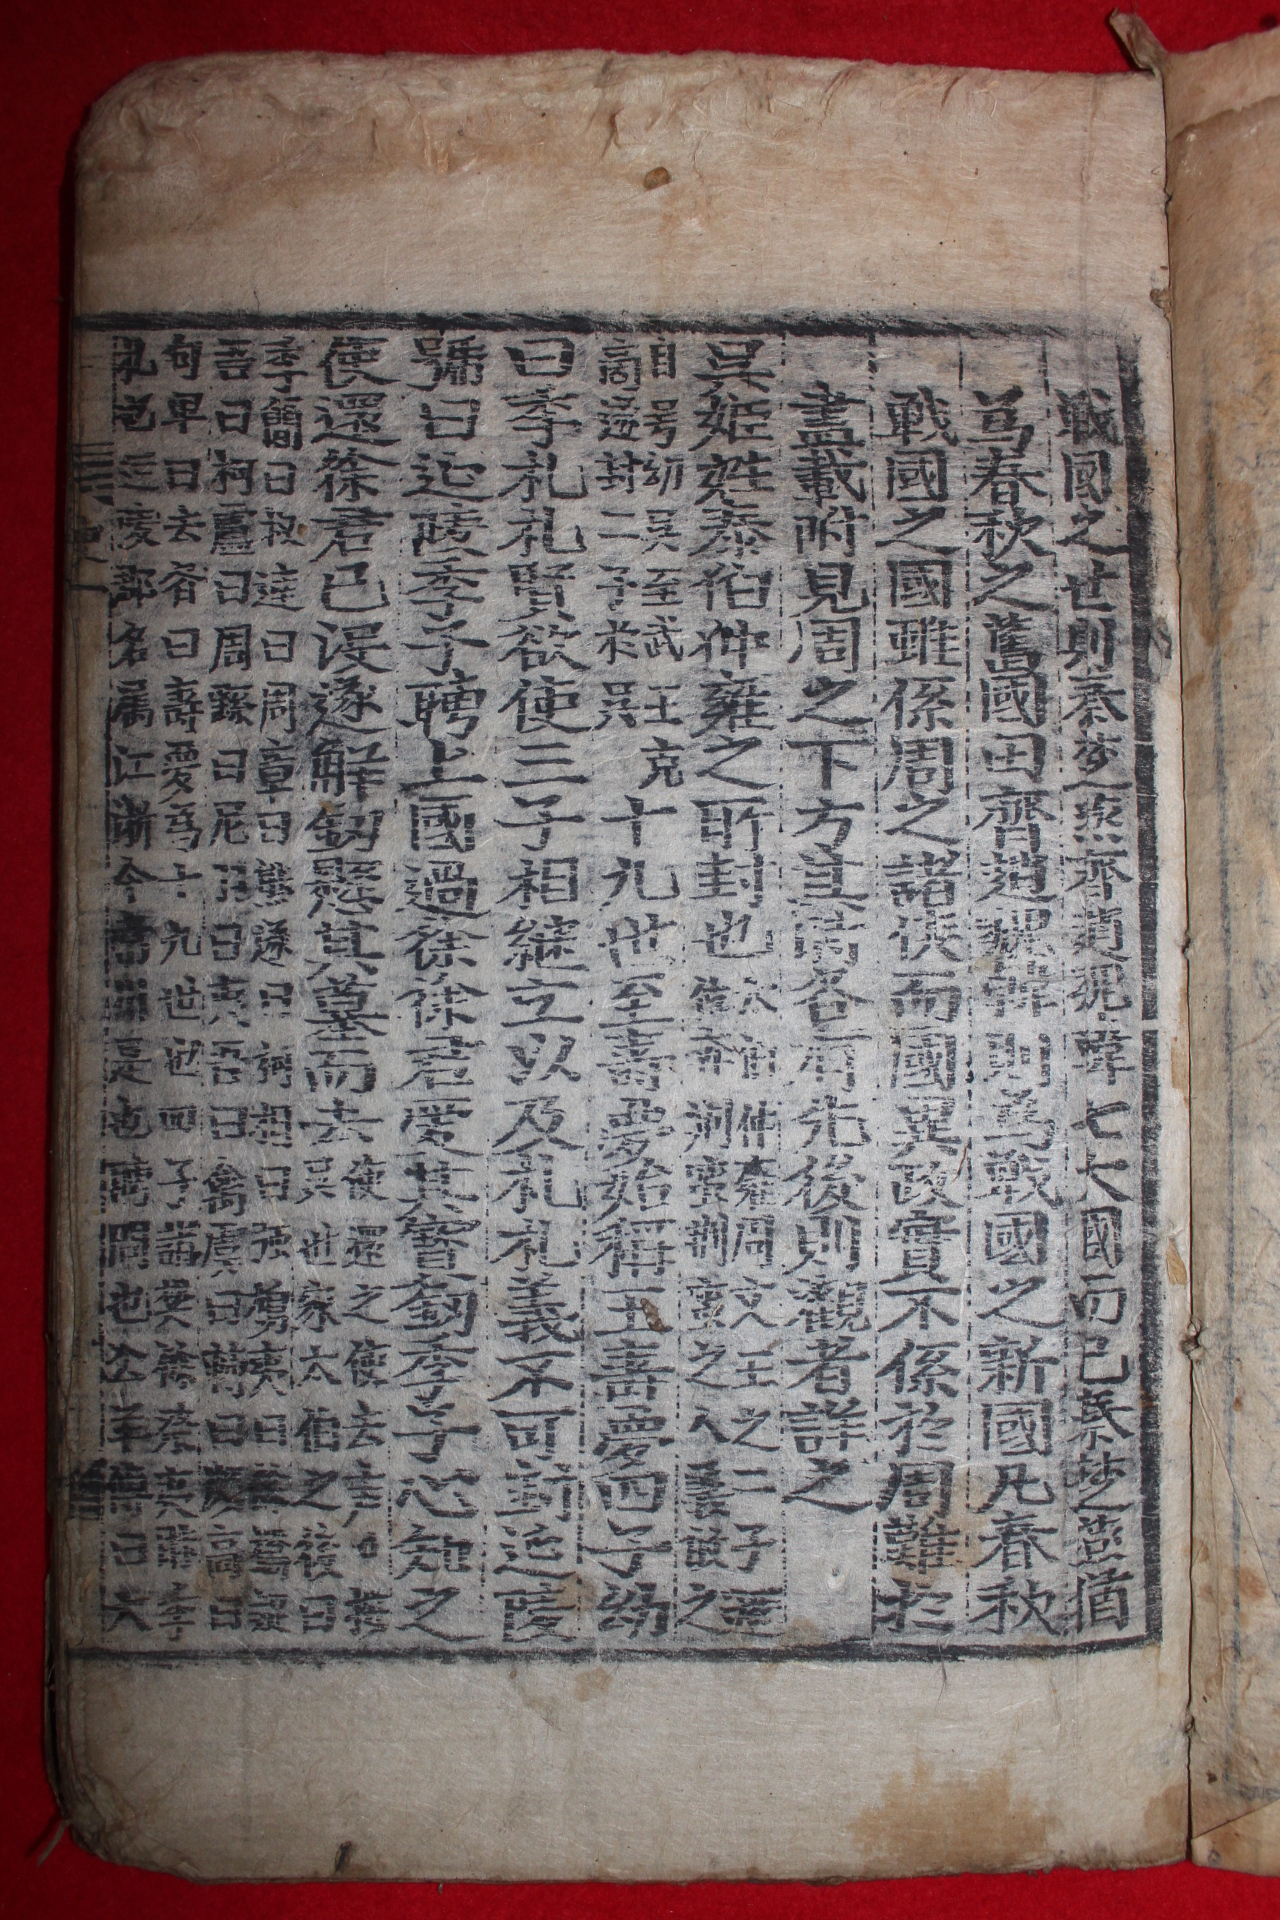 戰國之世則秦楚燕齊趙魏韓七大國而已秦楚燕猶
爲春秋之舊國田齊趙魏韓則爲戰國之新國凡春秋
戰國之國雖係周之諸侯而國異政實不係於周難於
盡載附見周之下方其間各有先後則觀者詳之
吳姬姓泰伯仲雍之所封也太伯仲雍周文王之二子逃
荊蠻荊蠻之人義歸之
自号勾吳至武王克
商遂封二子於吳十九世至壽夢始稱王壽夢四子幼
曰季札札賢欲使三子相繼立以及札札義不可封延陵
號曰延陵季子聘上國過徐徐君愛其寶劒季子心知之
使還徐君已沒遂解劒懸其墓而去使還之使去声○按
吳世家太伯之後曰
季簡曰叔達曰周章曰熊遂曰柯相曰强鳩夷曰餘橋疑
吾曰柯盧曰周繇曰屈羽曰夷吾曰禽處曰轉曰頗高曰
句卑曰去齊曰壽夢爲十九世也四子諸樊餘祭夷昧季
札也延陵郡名属江浙今常州是也間也公羊傳曰大